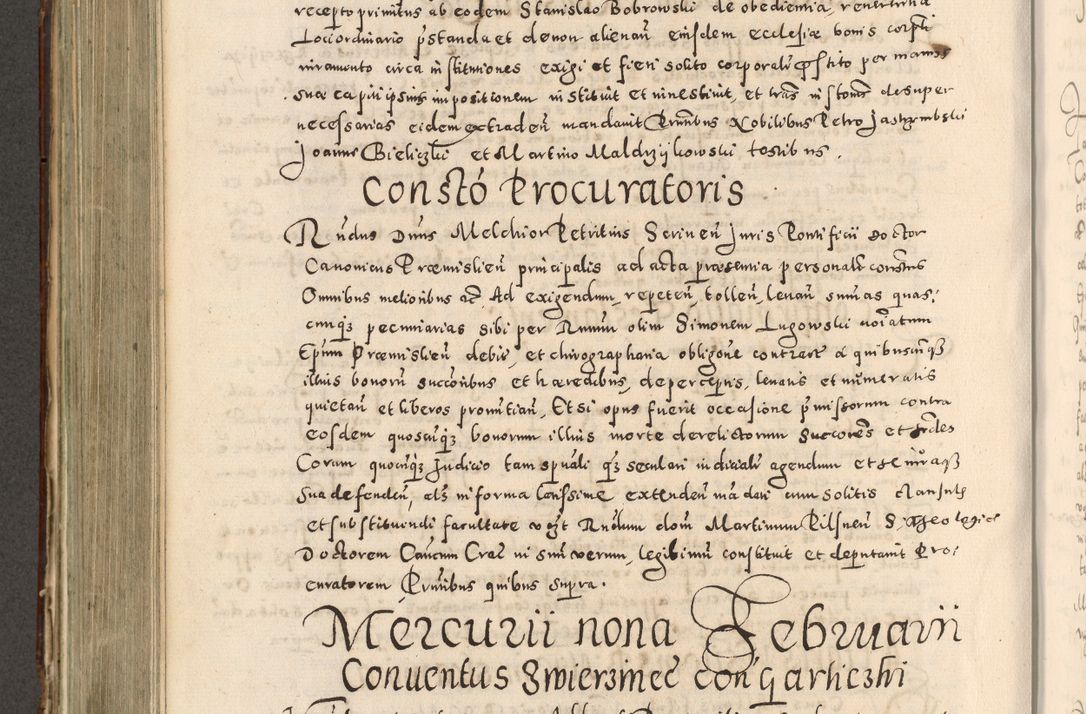 recepto primitus ab eodem Stanislao Bobrowski de obedientia, reverentia
Loci ordinario pstanda et de non alienan eiusdem ecclesiæ bonis corpli
iuramento circa institutiones exigi et fieri solito corporali pstito per manus
suæ capiti ipsius impositionem instituit et investivit, et tras in stons desuper
necessarias eidem extraden mandavit Pruntibus Nobilibus Petro Jastrzembski
Joanne Bieliczki et Martino Maldrzykowski testibus.
Consto Procuratoris
Rndus Dnus Melchior Petritius Scrinen Juris Pontificii doctor
Canonicus Præmislien principalis ad acta præsentia personalr constus
Omnibus melioribus etc Ad exigendum, repeten, tollen, levan sumas quas,
cunqz pecuniarias sibi per Rndum olim Simonem Lugowski noiatum
Epum Præmislien debit, et chirographaria obligone contract a quibuscunqz
illius bonoru succoribus et hæredibus, de perceptis, levatis et numeratis
quietan et liberos pronutian, Et si opus fuerit occasione pmissorum contra
eosdem quoscuqz bonorum illius morte derelictorum Succores et hrdes
Coram quocuqz Judicio tam spuali qz seculari iudicialr agendum et se iuraqz
sua defenden, als in forma latissime extenden ma dari cum solitis clausulis
et substituendi facultate vgt Rndum dom Martinum Pilsnen S. Theologiæ
Doctorem Cancum Crac ut suu verum, legibimu constituit et deputavit Pro,
curatorem Pruntibus quibus supra.
Mercurii nona Februarii
Conventus Zwierzinec con Garliczki